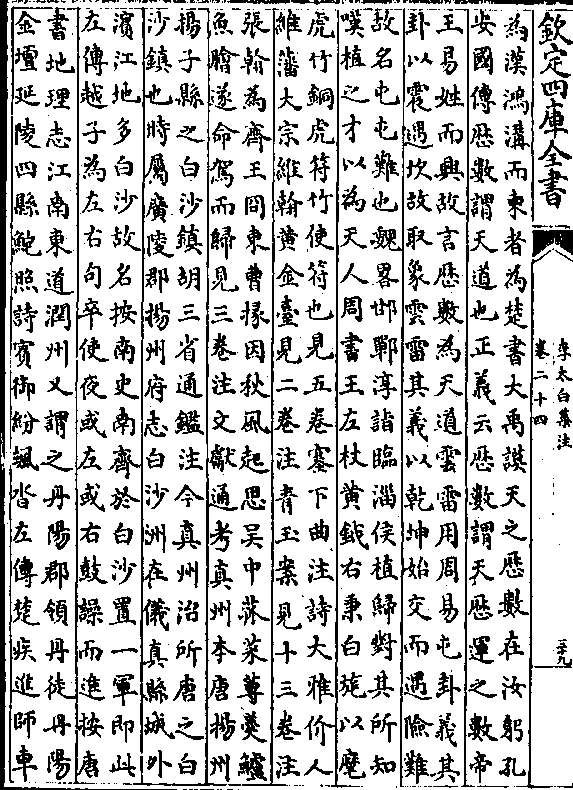 欽定四庫全書
李太白集注
卷二十四
三十九
為漢鴻溝而東者為楚書大禹謨天之厯數在汝躬孔
安國傳厯數謂天道也正義云厯數謂天厯運之數帝
王易姓而興故言厯數為天道雲雷用周易屯卦義其
卦以震遇坎故取象雲雷其義以乾坤始交而遇險難
故名屯屯難也魏畧邯鄲淳詣臨淄侯植歸對其所知
嘆植之才以為天人周書王左杖黄鉞右秉白旄以麾
虎竹銅虎符竹使符也見五卷塞下曲注詩大雅价人
維藩大宗維翰黄金臺見二卷注青玉案見十三卷注
張翰為齊王冏東曹掾因秋風起思吴中菰菜蓴羮鱸
魚膾遂命駕而歸見三卷注文獻通考真州本唐揚州
揚子縣之白沙鎮胡三省通鑑注今真州治所唐之白
沙鎮也時屬廣陵郡揚州府志白沙洲在儀真縣城外
濵江地多白沙故名按南史南齊於白沙置一軍即此
左傳越子為左右句卒使夜或左或右鼓譟而進按唐
書地理志江南東道潤州又謂之丹陽郡領丹徒丹陽
金壇延陵四縣鮑照詩賓御紛颯沓左傳楚疾進師車